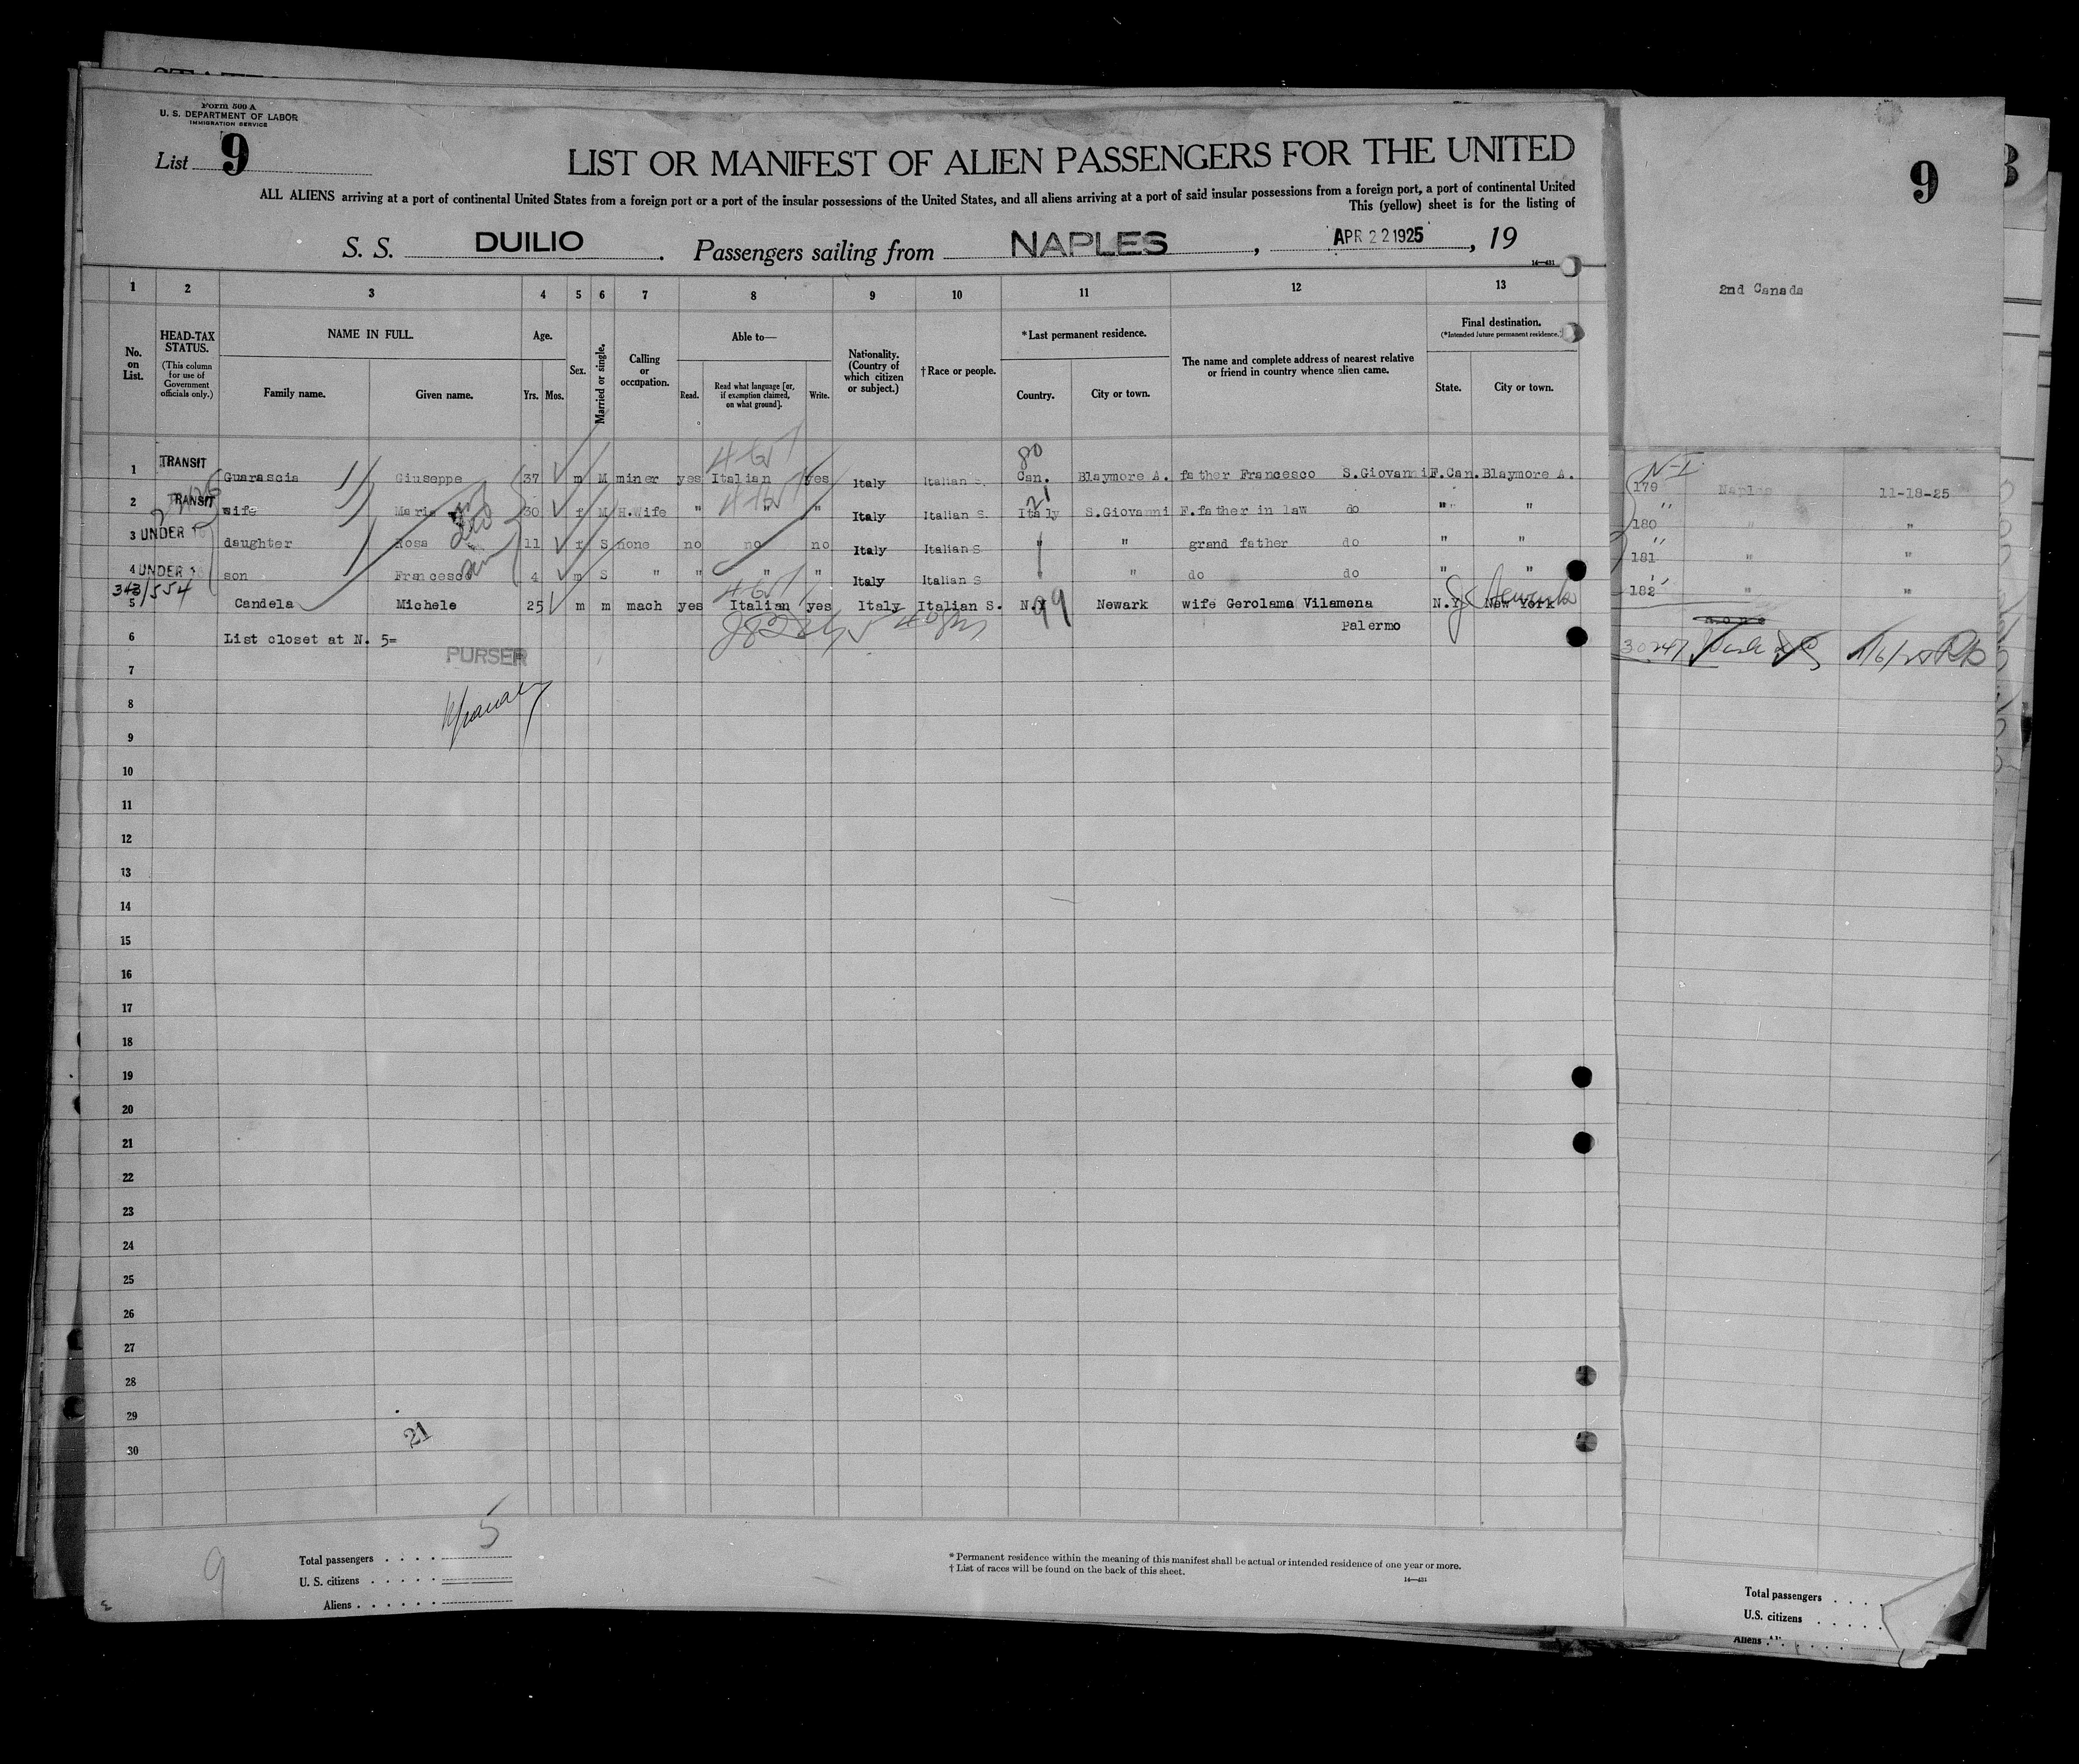 Form 500 A
U. S. DEPARTMENT OF LABOR
IMMIGRATION SERVICE
List 9
LIST OR MANIFEST OF ALIEN PASSENGERS FOR THE UNITED
ALL ALIENS arriving at a port of continental United States from a foreign port or a port of the insular possessions of the United States, and all aliens arriving at a port of said insular possessions from a foreign port, a port of continental United
This (yellow) sheet is for the listing of
S. S. DUILIO . Passengers sailing from NAPLES , APR 22 1925 , 19
14—431
9
2nd Canada
1 2 3 4 5 6 7 8 9 10 11 12 13
No. on List.
HEAD-TAX STATUS.
(This column for use of Government officials only.)
NAME IN FULL.
Family name. Given name.
Age.
Yrs. Mos.
Sex.
Married or single.
Calling or occupation.
Able to—
Read. Read what language [or, if exemption claimed, on what ground]. Write.
Nationality. (Country of which citizen or subject.)
†Race or people.
*Last permanent residence.
Country. City or town.
The name and complete address of nearest relative or friend in country whence alien came.
Final destination.
(*Intended future permanent residence.)
State. City or town.
1 TRANSIT Guarascia Giuseppe 37 m M miner yes Italian yes Italy Italian S. Can. Blaymore A. father Francesco S.Giovanni F. Can. Blaymore A. 179 Naples 11-18-25
2 TRANSIT wife Maria 30 f M H.Wife " " " Italy Italian S. Italy S.Giovanni F. father in law do " " 180 " "
3 UNDER 16 daughter Rosa 11 f S none no no no Italy Italian S. " " grand father do " " 181 " "
4 UNDER 16 son Francesco 4 m S " " " " Italy Italian S " do do " " 182 " "
343/554
5 Candela Michele 25 m m mach yes Italian yes Italy Italian S. N.Y Newark wife Gerolama Vilamena N.Y. New York Newark
Palermo
6 List closet at N. 5=
PURSER
7
8
9
10
11
12
13
14
15
16
17
18
19
20
21
22
23
24
25
26
27
28
29
30
21
9
Total passengers . . . . 5
U. S. citizens . . . . .
Aliens . . . . . .
* Permanent residence within the meaning of this manifest shall be actual or intended residence of one year or more.
† List of races will be found on the back of this sheet.
14—431
Total passengers . . . .
U.S. citizens . . . . .
Aliens